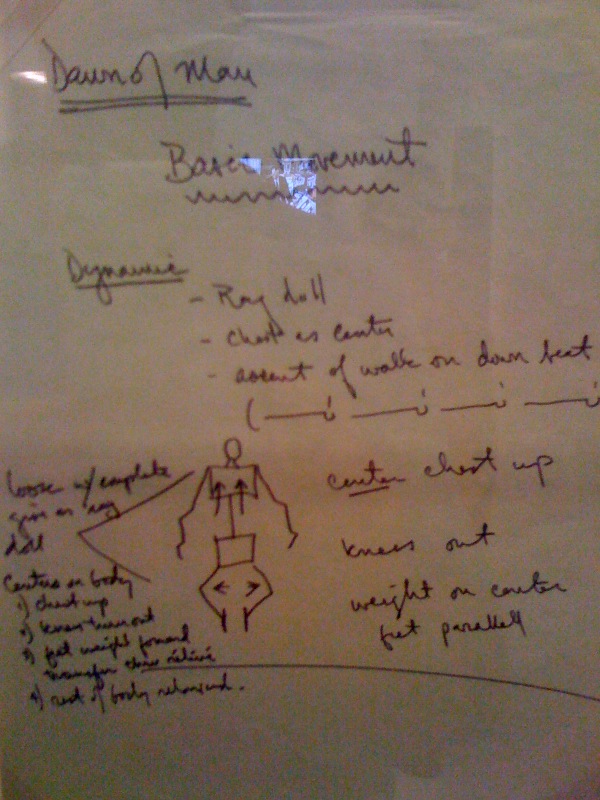 Dawn of Man
Basic Movement
Dynamic
- Rag doll
- chest as center
- accent of walk on down beat
center chest up
knees out
weight on center
feet parallell
loose w/ complete
give as rag
doll
Centers on body
1) chest up
2) knees turn out
3) feet weight forward
transfer thru relévé
4) rest of body released.